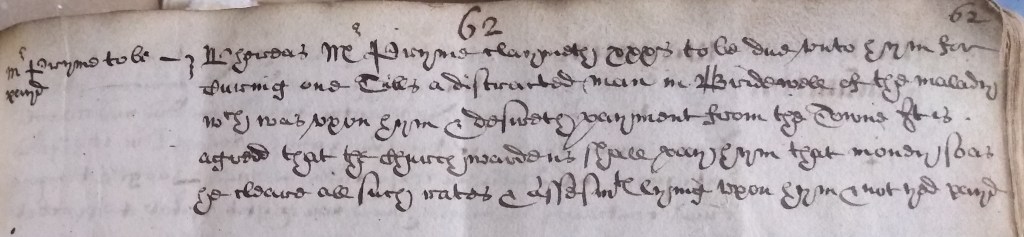 62
62
Mr Pryme to be
payd
Whereas Mr Pryme claymeth xxxs to be due unto hym for
Curinig one Tills a distracted man in Bridewell of the malady
wch was vpon hym & desireth payment from the Towne It is
agreed that the Church wardens shall pay hym that money so as
he cleare all such rates & Assesmts lying vpon hym & not yet payd